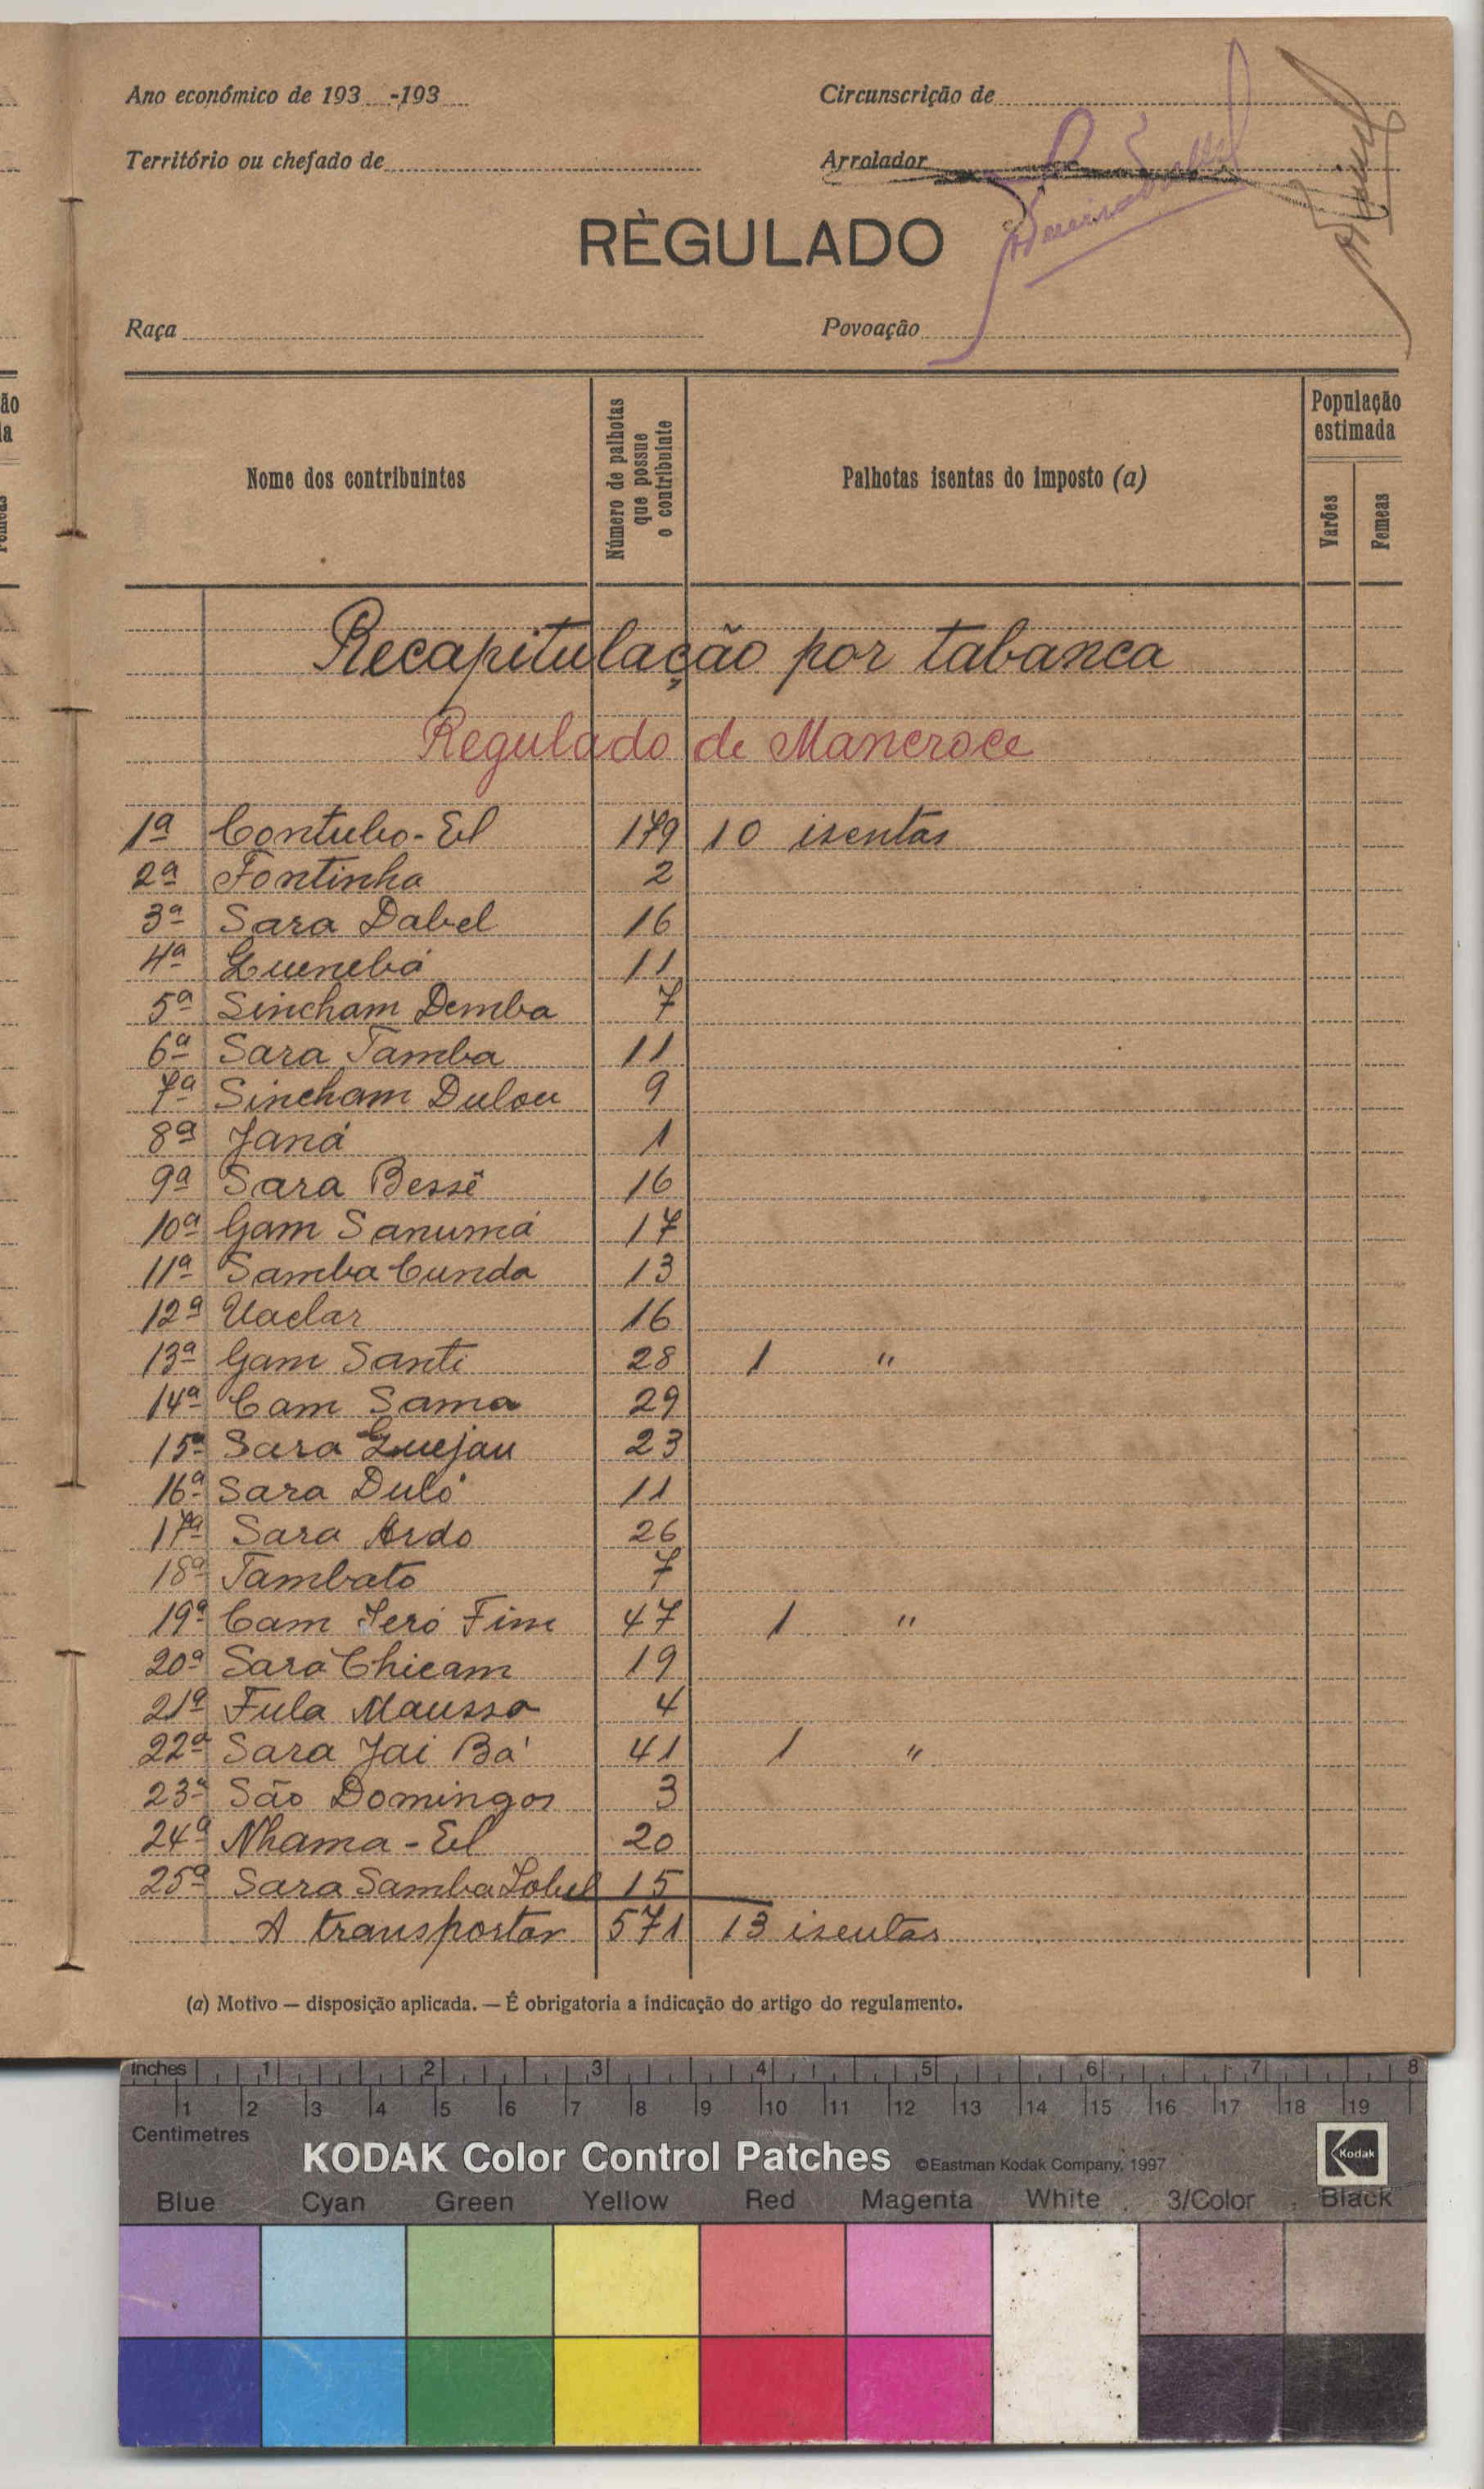 Ano económico de 193 -193
Circunscrição de
Território ou chefado de
Arrolador
RÈGULADO
Raça
Povoação
Nome dos contribuintes
Número de palhotas que possue o contribuinte
Palhotas isentas do imposto (a)
População estimada
Varões
Femeas
Recapitulação por tabanca
Regulado de Mancroce
1ª Contubo-El 179 10 isentas
2ª Fontinha 2
3ª Sara Dabel 16
4ª Quenebá 11
5ª Sincham Demba 7
6ª Sara Tamba 11
7ª Sincham Dulou 9
8ª Janá 1
9ª Sara Bessê 16
10ª Gam Sanumá 17
11ª Samba Cunda 13
12ª Uaclar 16
13ª Gam Santi 28 1 "
14ª Cam Sama 29
15ª Sara Guejau 23
16ª Sara Duló 11
17ª Sara Ardo 26
18ª Tambato 7
19ª Cam Jeró Fim 47 1 "
20ª Sara Chicam 19
21ª Fula Maussa 4
22ª Sara Jai Bá 41 1 "
23ª São Domingos 3
24ª Nhama-El 20
25ª Sara Samba Lobel 15
A transportar 571 13 isentas
(a) Motivo — disposição aplicada. — É obrigatoria a indicação do artigo do regulamento.
inches 1 2 3 4 5 6 7 8
1 2 3 4 5 6 7 8 9 10 11 12 13 14 15 16 17 18 19
Centimetres
KODAK Color Control Patches ©Eastman Kodak Company, 1997 Kodak
Blue Cyan Green Yellow Red Magenta White 3/Color Black